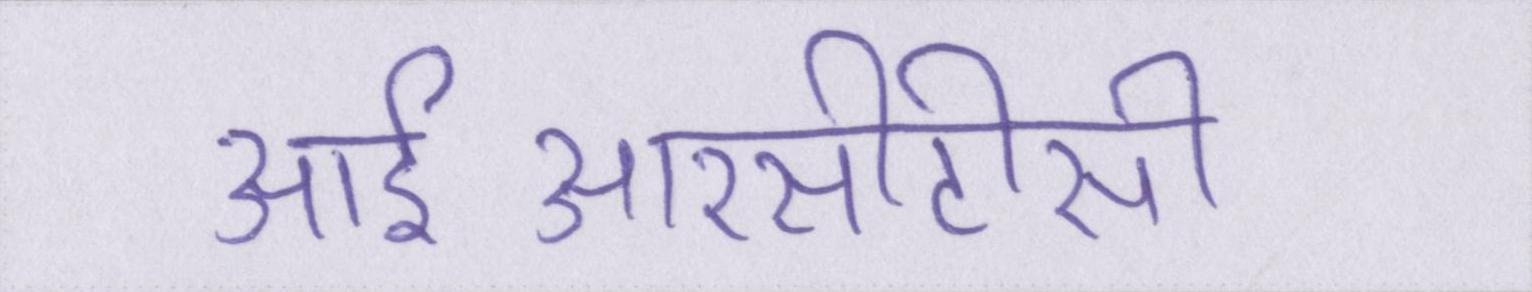 आईआरसीटीसी